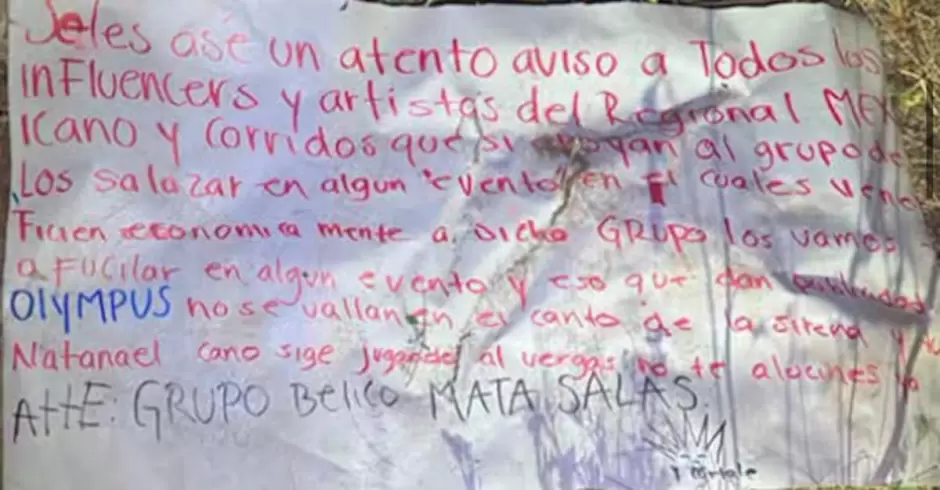 Seles ase un atento aviso a Todos los
inFluencers y artistas del Regional MEX
Icano y corridos que si apoyan al grupo de
Los salazar en algun "evento" en el cuales vene
Ficien economica mente a. dicho GRUPO los vamos
a FUCilar en algun evento y eso que dan
OlYMPUS no se vallan en el canto de la sirena y
Natanael cano sige jugando al vergas no te alucines ya
AttE: GRUPO BeliCo MATA SALAS.